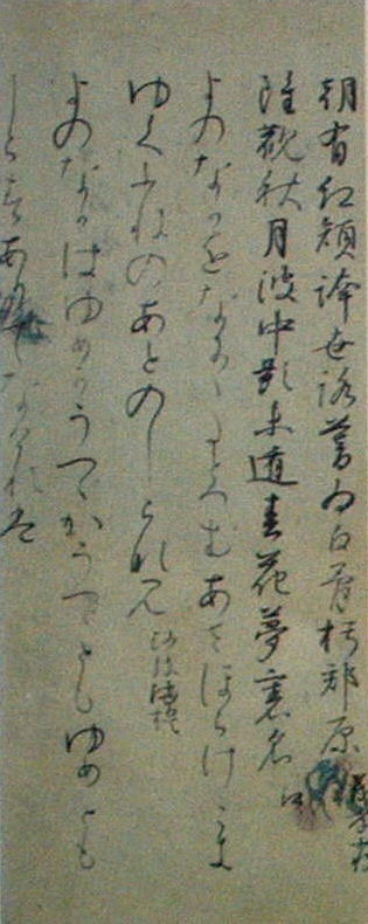 朝有紅顔誇世路暮為白骨朽郊原
義孝
雖観秋月波中影未遁春花夢裏名
江
よのなかをなにゝたとへむあさほらけこき
ゆくふねのあとのしらなみ
沙弥満誓
よのなかはゆめかうつゝかうつゝともゆめとも
しらすありてなけれは